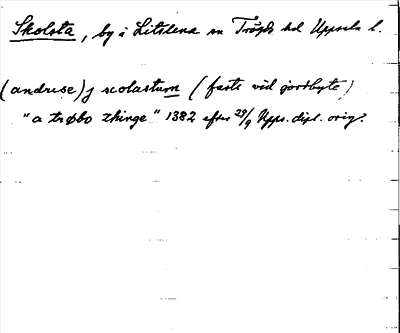 Skolsta, by i Litslena sn Trögds hd Uppsala l.
(andruse) j scolastum (faste vid jordbyte)
"a trøbo thinge" 1382 efter 29/9 Upps. dipl. orig.